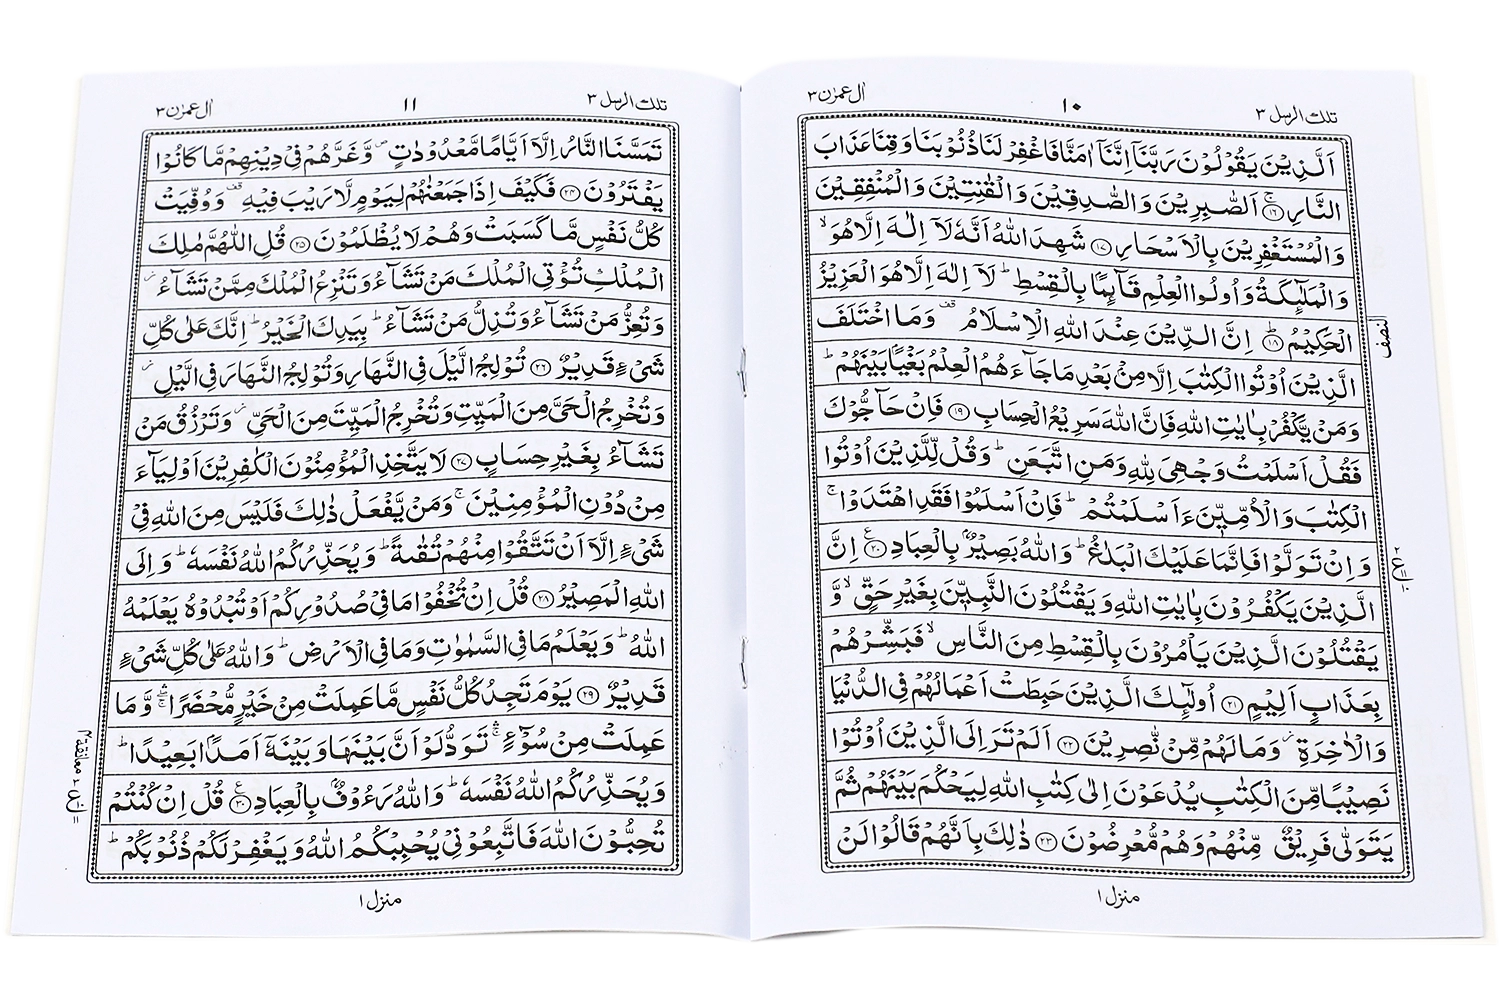 تلك الرسل ٣
١٠
اٰل عمرٰن ٣
اَلَّذِيْنَ يَقُوْلُوْنَ رَبَّنَاۤ اِنَّنَاۤ اٰمَنَّا فَاغْفِرْ لَنَا ذُنُوْبَنَا وَقِنَا عَذَابَ
النَّارِ ۚ‏﴿۱۶﴾ اَلصّٰبِرِيْنَ وَالصّٰدِقِيْنَ وَالْقٰنِتِيْنَ وَالْمُنْفِقِيْنَ
وَالْمُسْتَغْفِرِيْنَ بِالْاَسْحَارِ ﴿۱۷﴾ شَهِدَ اللّٰهُ اَنَّهٗ لَاۤ اِلٰهَ اِلَّا هُوَ ۙ
وَالْمَلٰٓئِكَةُ وَاُولُوا الْعِلْمِ قَآئِمًۢا بِالْقِسْطِ ؕ لَاۤ اِلٰهَ اِلَّا هُوَ الْعَزِيْزُ
الْحَكِيْمُ ؕ﴿۱۸﴾ اِنَّ الدِّيْنَ عِنْدَ اللّٰهِ الْاِسْلَامُ قف وَمَا اخْتَلَفَ
الَّذِيْنَ اُوْتُوا الْكِتٰبَ اِلَّا مِنْۢ بَعْدِ مَا جَآءَهُمُ الْعِلْمُ بَغْيًۢا بَيْنَهُمْ ؕ
وَمَنْ يَّكْفُرْ بِاٰيٰتِ اللّٰهِ فَاِنَّ اللّٰهَ سَرِيْعُ الْحِسَابِ ﴿۱۹﴾ فَاِنْ حَآجُّوْكَ
فَقُلْ اَسْلَمْتُ وَجْهِيَ لِلّٰهِ وَمَنِ اتَّبَعَنِ ؕ وَقُلْ لِّلَّذِيْنَ اُوْتُوا
الْكِتٰبَ وَالْاُمِّيّٖنَ ءَاَسْلَمْتُمْ ؕ فَاِنْ اَسْلَمُوْا فَقَدِ اهْتَدَوْا ۚ
وَاِنْ تَوَلَّوْا فَاِنَّمَا عَلَيْكَ الْبَلٰغُ ؕ وَاللّٰهُ بَصِيْرٌۢ بِالْعِبَادِ ﴿۲۰﴾ اِنَّ
الَّذِيْنَ يَكْفُرُوْنَ بِاٰيٰتِ اللّٰهِ وَيَقْتُلُوْنَ النَّبِيّٖنَ بِغَيْرِ حَقٍّ ۙ وَّ
يَقْتُلُوْنَ الَّذِيْنَ يَاْمُرُوْنَ بِالْقِسْطِ مِنَ النَّاسِ ۙ فَبَشِّرْهُمْ
بِعَذَابٍ اَلِيْمٍ ﴿۲۱﴾ اُولٰٓئِكَ الَّذِيْنَ حَبِطَتْ اَعْمَالُهُمْ فِي الدُّنْيَا
وَالْاٰخِرَةِ ز وَمَا لَهُمْ مِّنْ نّٰصِرِيْنَ ﴿۲۲﴾ اَلَمْ تَرَ اِلَى الَّذِيْنَ اُوْتُوْا
نَصِيْبًا مِّنَ الْكِتٰبِ يُدْعَوْنَ اِلٰى كِتٰبِ اللّٰهِ لِيَحْكُمَ بَيْنَهُمْ ثُمَّ
يَتَوَلّٰى فَرِيْقٌ مِّنْهُمْ وَهُمْ مُّعْرِضُوْنَ ﴿۲۳﴾ ذٰلِكَ بِاَنَّهُمْ قَالُوْا لَنْ
النصف
منزل ١
تلك الرسل ٣
١١
اٰل عمرٰن ٣
تَمَسَّنَا النَّارُ اِلَّاۤ اَيَّامًا مَّعْدُوْدٰتٍ ص وَّغَرَّهُمْ فِيْ دِيْنِهِمْ مَّا كَانُوْا
يَفْتَرُوْنَ ﴿۲۴﴾ فَكَيْفَ اِذَا جَمَعْنٰهُمْ لِيَوْمٍ لَّا رَيْبَ فِيْهِ قف وَوُفِّيَتْ
كُلُّ نَفْسٍ مَّا كَسَبَتْ وَهُمْ لَا يُظْلَمُوْنَ ﴿۲۵﴾ قُلِ اللّٰهُمَّ مٰلِكَ
الْمُلْكِ تُؤْتِي الْمُلْكَ مَنْ تَشَآءُ وَتَنْزِعُ الْمُلْكَ مِمَّنْ تَشَآءُ ز
وَتُعِزُّ مَنْ تَشَآءُ وَتُذِلُّ مَنْ تَشَآءُ ؕ بِيَدِكَ الْخَيْرُ ؕ اِنَّكَ عَلٰى كُلِّ
شَيْءٍ قَدِيْرٌ ﴿۲۶﴾ تُوْلِجُ الَّيْلَ فِي النَّهَارِ وَتُوْلِجُ النَّهَارَ فِي الَّيْلِ ز
وَتُخْرِجُ الْحَيَّ مِنَ الْمَيِّتِ وَتُخْرِجُ الْمَيِّتَ مِنَ الْحَيِّ ز وَتَرْزُقُ مَنْ
تَشَآءُ بِغَيْرِ حِسَابٍ ﴿۲۷﴾ لَا يَتَّخِذِ الْمُؤْمِنُوْنَ الْكٰفِرِيْنَ اَوْلِيَآءَ
مِنْ دُوْنِ الْمُؤْمِنِيْنَ ۚ وَمَنْ يَّفْعَلْ ذٰلِكَ فَلَيْسَ مِنَ اللّٰهِ فِيْ
شَيْءٍ اِلَّاۤ اَنْ تَتَّقُوْا مِنْهُمْ تُقٰىةً ؕ وَيُحَذِّرُكُمُ اللّٰهُ نَفْسَهٗ ؕ وَاِلَى
اللّٰهِ الْمَصِيْرُ ﴿۲۸﴾ قُلْ اِنْ تُخْفُوْا مَا فِيْ صُدُوْرِكُمْ اَوْ تُبْدُوْهُ يَعْلَمْهُ
اللّٰهُ ؕ وَيَعْلَمُ مَا فِي السَّمٰوٰتِ وَمَا فِي الْاَرْضِ ؕ وَاللّٰهُ عَلٰى كُلِّ شَيْءٍ
قَدِيْرٌ ﴿۲۹﴾ يَوْمَ تَجِدُ كُلُّ نَفْسٍ مَّا عَمِلَتْ مِنْ خَيْرٍ مُّحْضَرًا ۛۚ وَّمَا
عَمِلَتْ مِنْ سُوْٓءٍ ۛۚ تَوَدُّ لَوْ اَنَّ بَيْنَهَا وَبَيْنَهٗۤ اَمَدًۢا بَعِيْدًا ؕ
وَيُحَذِّرُكُمُ اللّٰهُ نَفْسَهٗ ؕ وَاللّٰهُ رَءُوْفٌۢ بِالْعِبَادِ ﴿۳۰﴾ قُلْ اِنْ كُنْتُمْ
تُحِبُّوْنَ اللّٰهَ فَاتَّبِعُوْنِيْ يُحْبِبْكُمُ اللّٰهُ وَيَغْفِرْ لَكُمْ ذُنُوْبَكُمْ ؕ
منزل ١